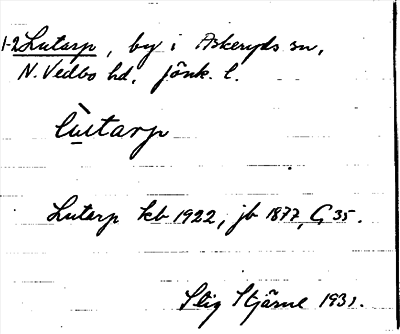 1-2 Lutarp, by i Askeryds sn,
N. Vedbo hd, Jönk. l.
lùtarp
Lutarp kb 1922, jb 1877, G 35.
Stig Stjärne 1931.